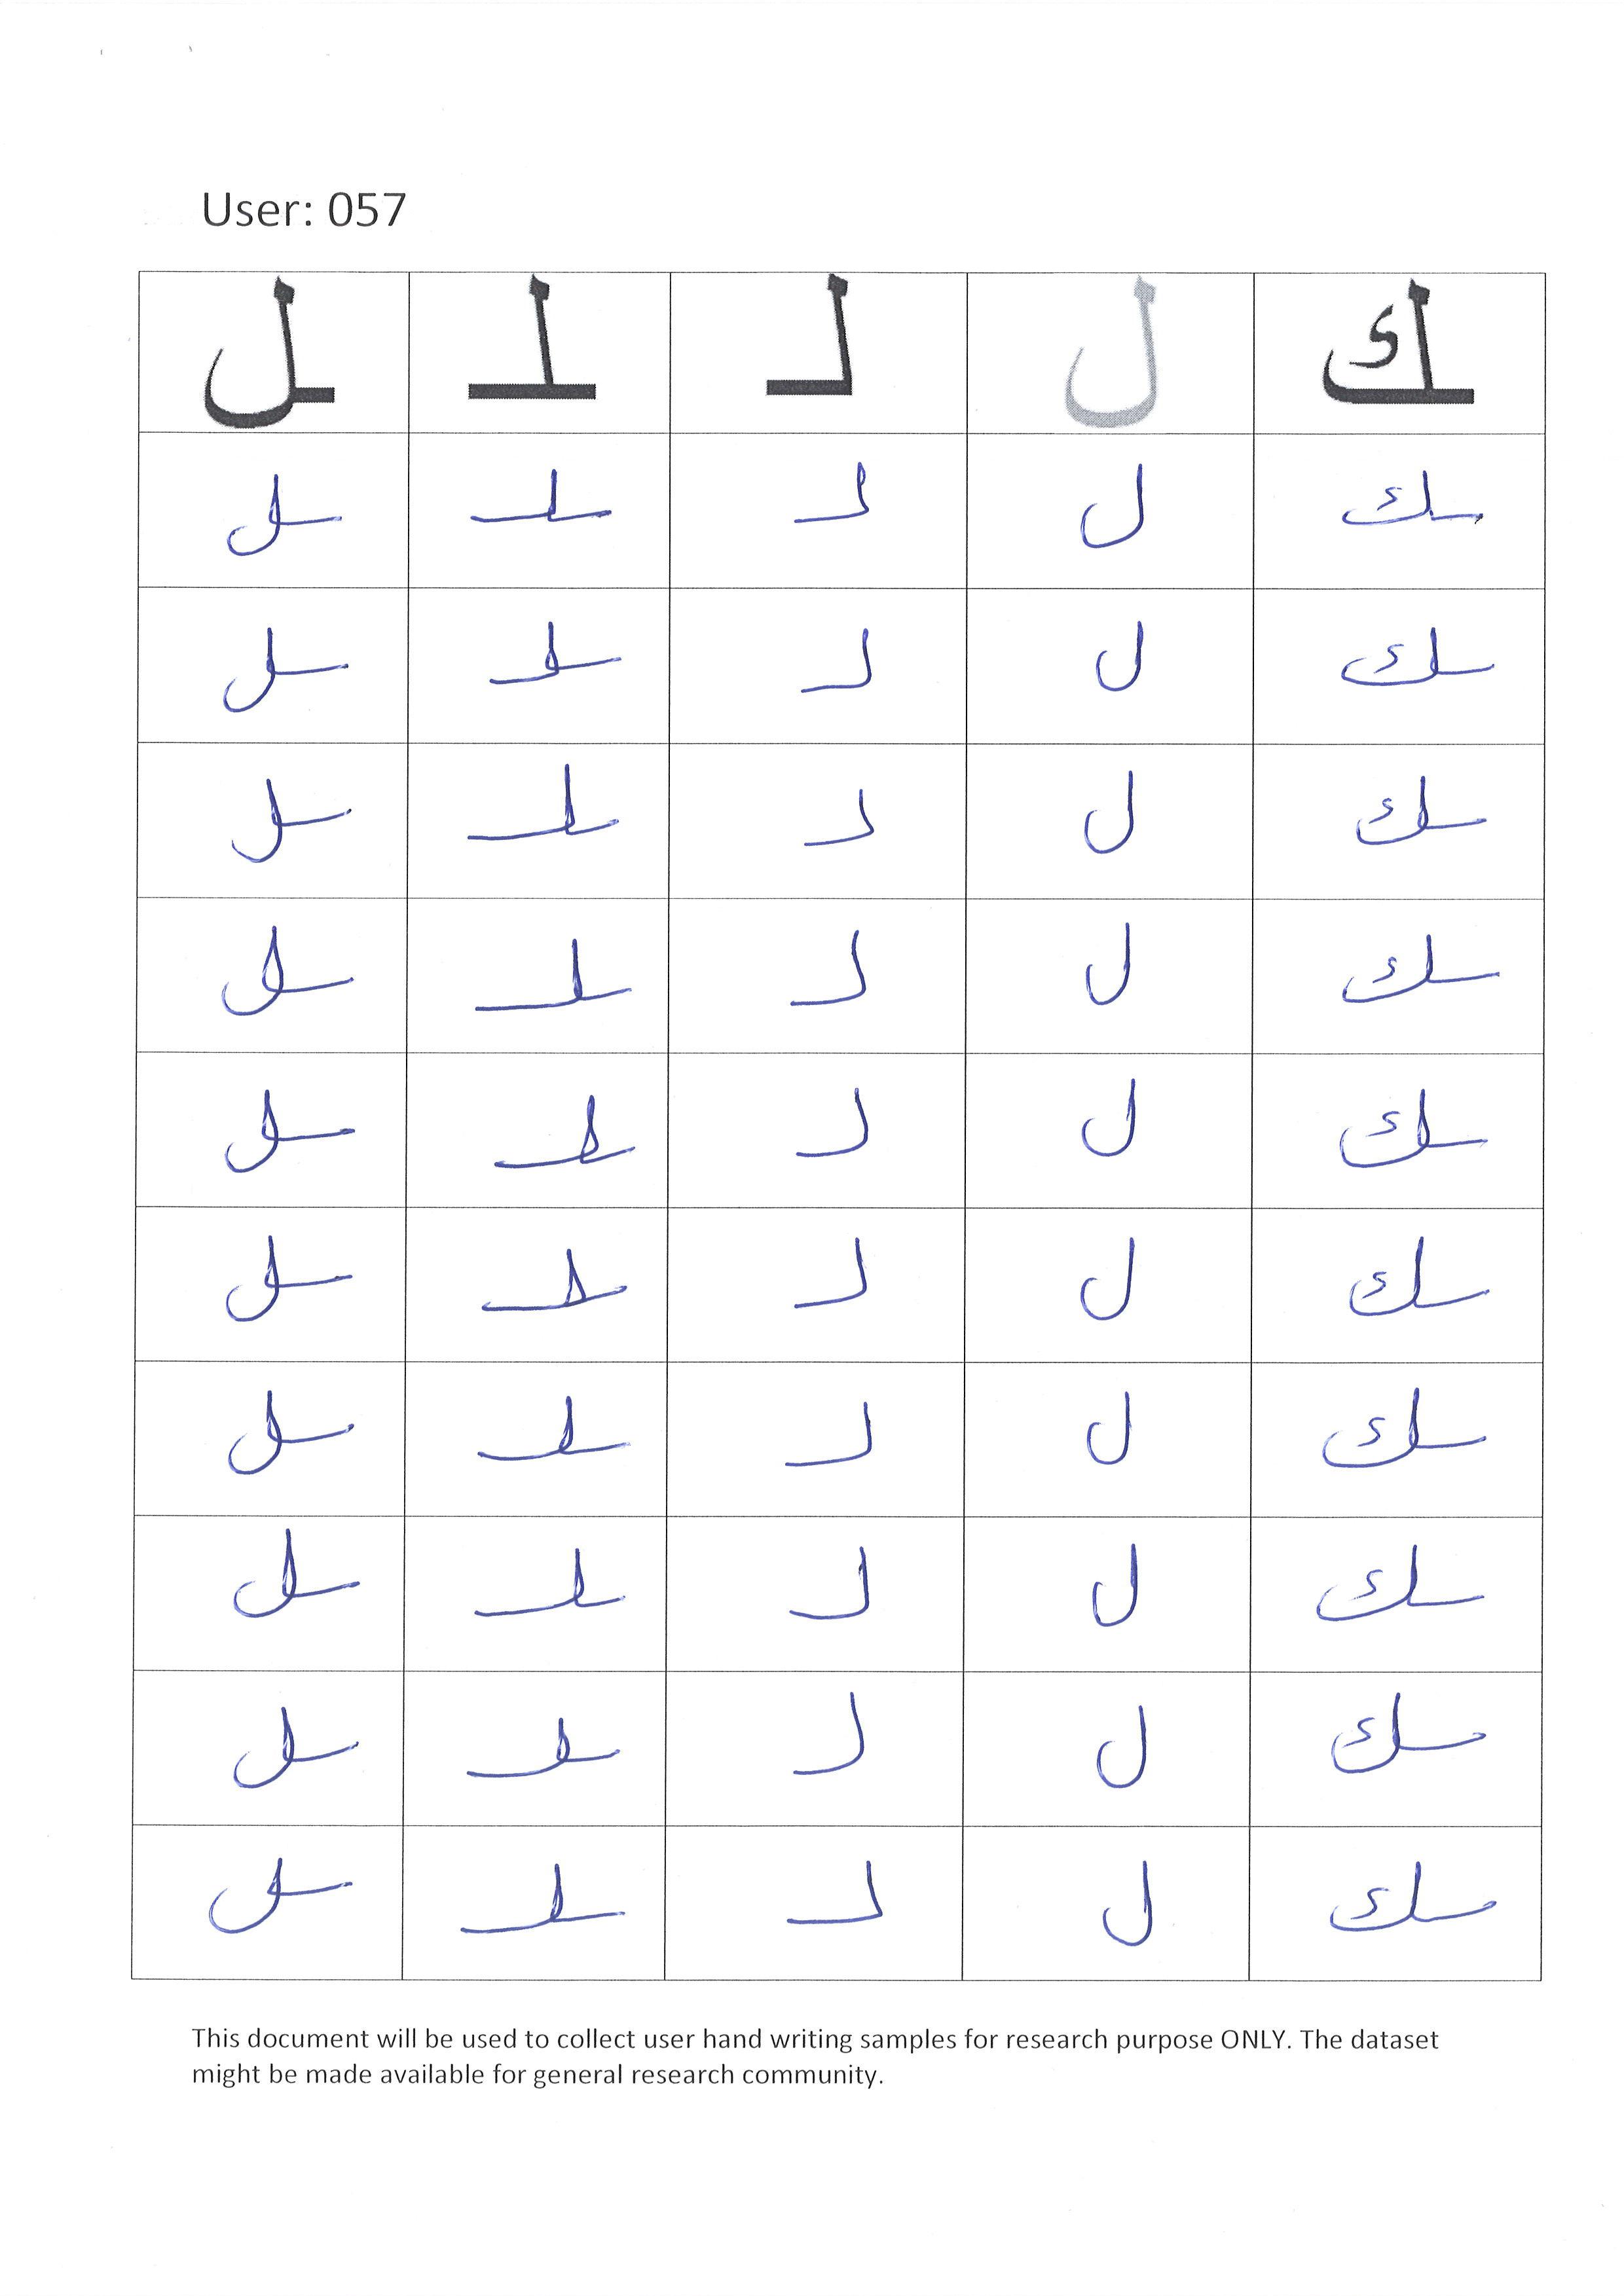 User: 057
ـل ـلـ لـ ل ـك
ـل ـلـ لـ ل ـك
ـل ـلـ لـ ل ـك
ـل ـلـ لـ ل ـك
ـل ـلـ لـ ل ـك
ـل ـلـ لـ ل ـك
ـل ـلـ لـ ل ـك
ـل ـلـ لـ ل ـك
ـل ـلـ لـ ل ـك
ـل ـلـ لـ ل ـك
ـل ـلـ لـ ل ـك
This document will be used to collect user hand writing samples for research purpose ONLY. The dataset
might be made available for general research community.